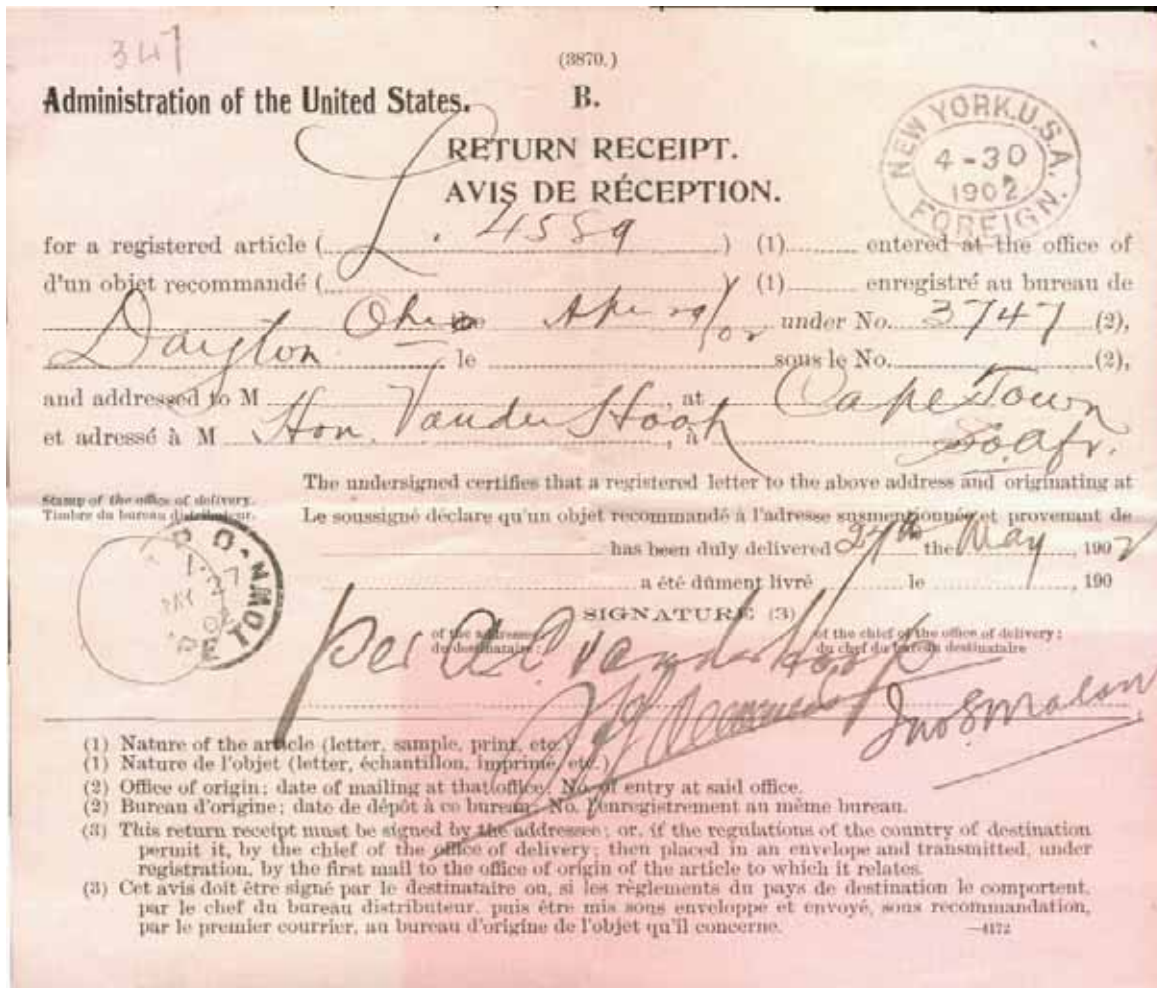 347
(3870.)
Administration of the United States. B.
RETURN RECEIPT.
AVIS DE RÉCEPTION.
NEW YORK, U.S.A.
4-30
1902
FOREIGN.
for a registered article ( L. 4589 ) (1) entered at the office of
d'un objet recommandé ( ) (1) enregistré au bureau de
Dayton Ohio Apr 29/02 under No. 3747 (2),
le sous le No. (2),
and addressed to M Hon. Vander Hoof, at Cape Town
et adressé à M , à So. Afr.
The undersigned certifies that a registered letter to the above address and originating at
Stamp of the office of delivery.
Timbre du bureau distributeur.
Le soussigné déclare qu'un objet recommandé à l'adresse susmentionnée et provenant de
has been duly delivered 27th the May, 1902
a été dûment livré le , 190
P.O.
1.
MAY 27
02
PE TOWN
SIGNATURE (3)
of the addressee: of the chief of the office of delivery;
du destinataire: du chef du bureau destinataire
per A.C. vanderHoop
Jno S Malan
(1) Nature of the article (letter, sample, print, etc.)
(1) Nature de l'objet (letter, échantillon, imprimé, etc.)
(2) Office of origin; date of mailing at that office; No. of entry at said office.
(2) Bureau d'origine; date de dépôt à ce bureau; No. l'enregistrement au même bureau.
(3) This return receipt must be signed by the addressee; or, if the regulations of the country of destination
permit it, by the chief of the office of delivery; then placed in an envelope and transmitted, under
registration, by the first mail to the office of origin of the article to which it relates.
(3) Cet avis doit être signé par le destinataire ou, si les règlements du pays de destination le comportent,
par le chef du bureau distributeur, puis être mis sous enveloppe et envoyé, sous recommandation,
par le premier courrier, au bureau d'origine de l'objet qu'il concerne. —4172